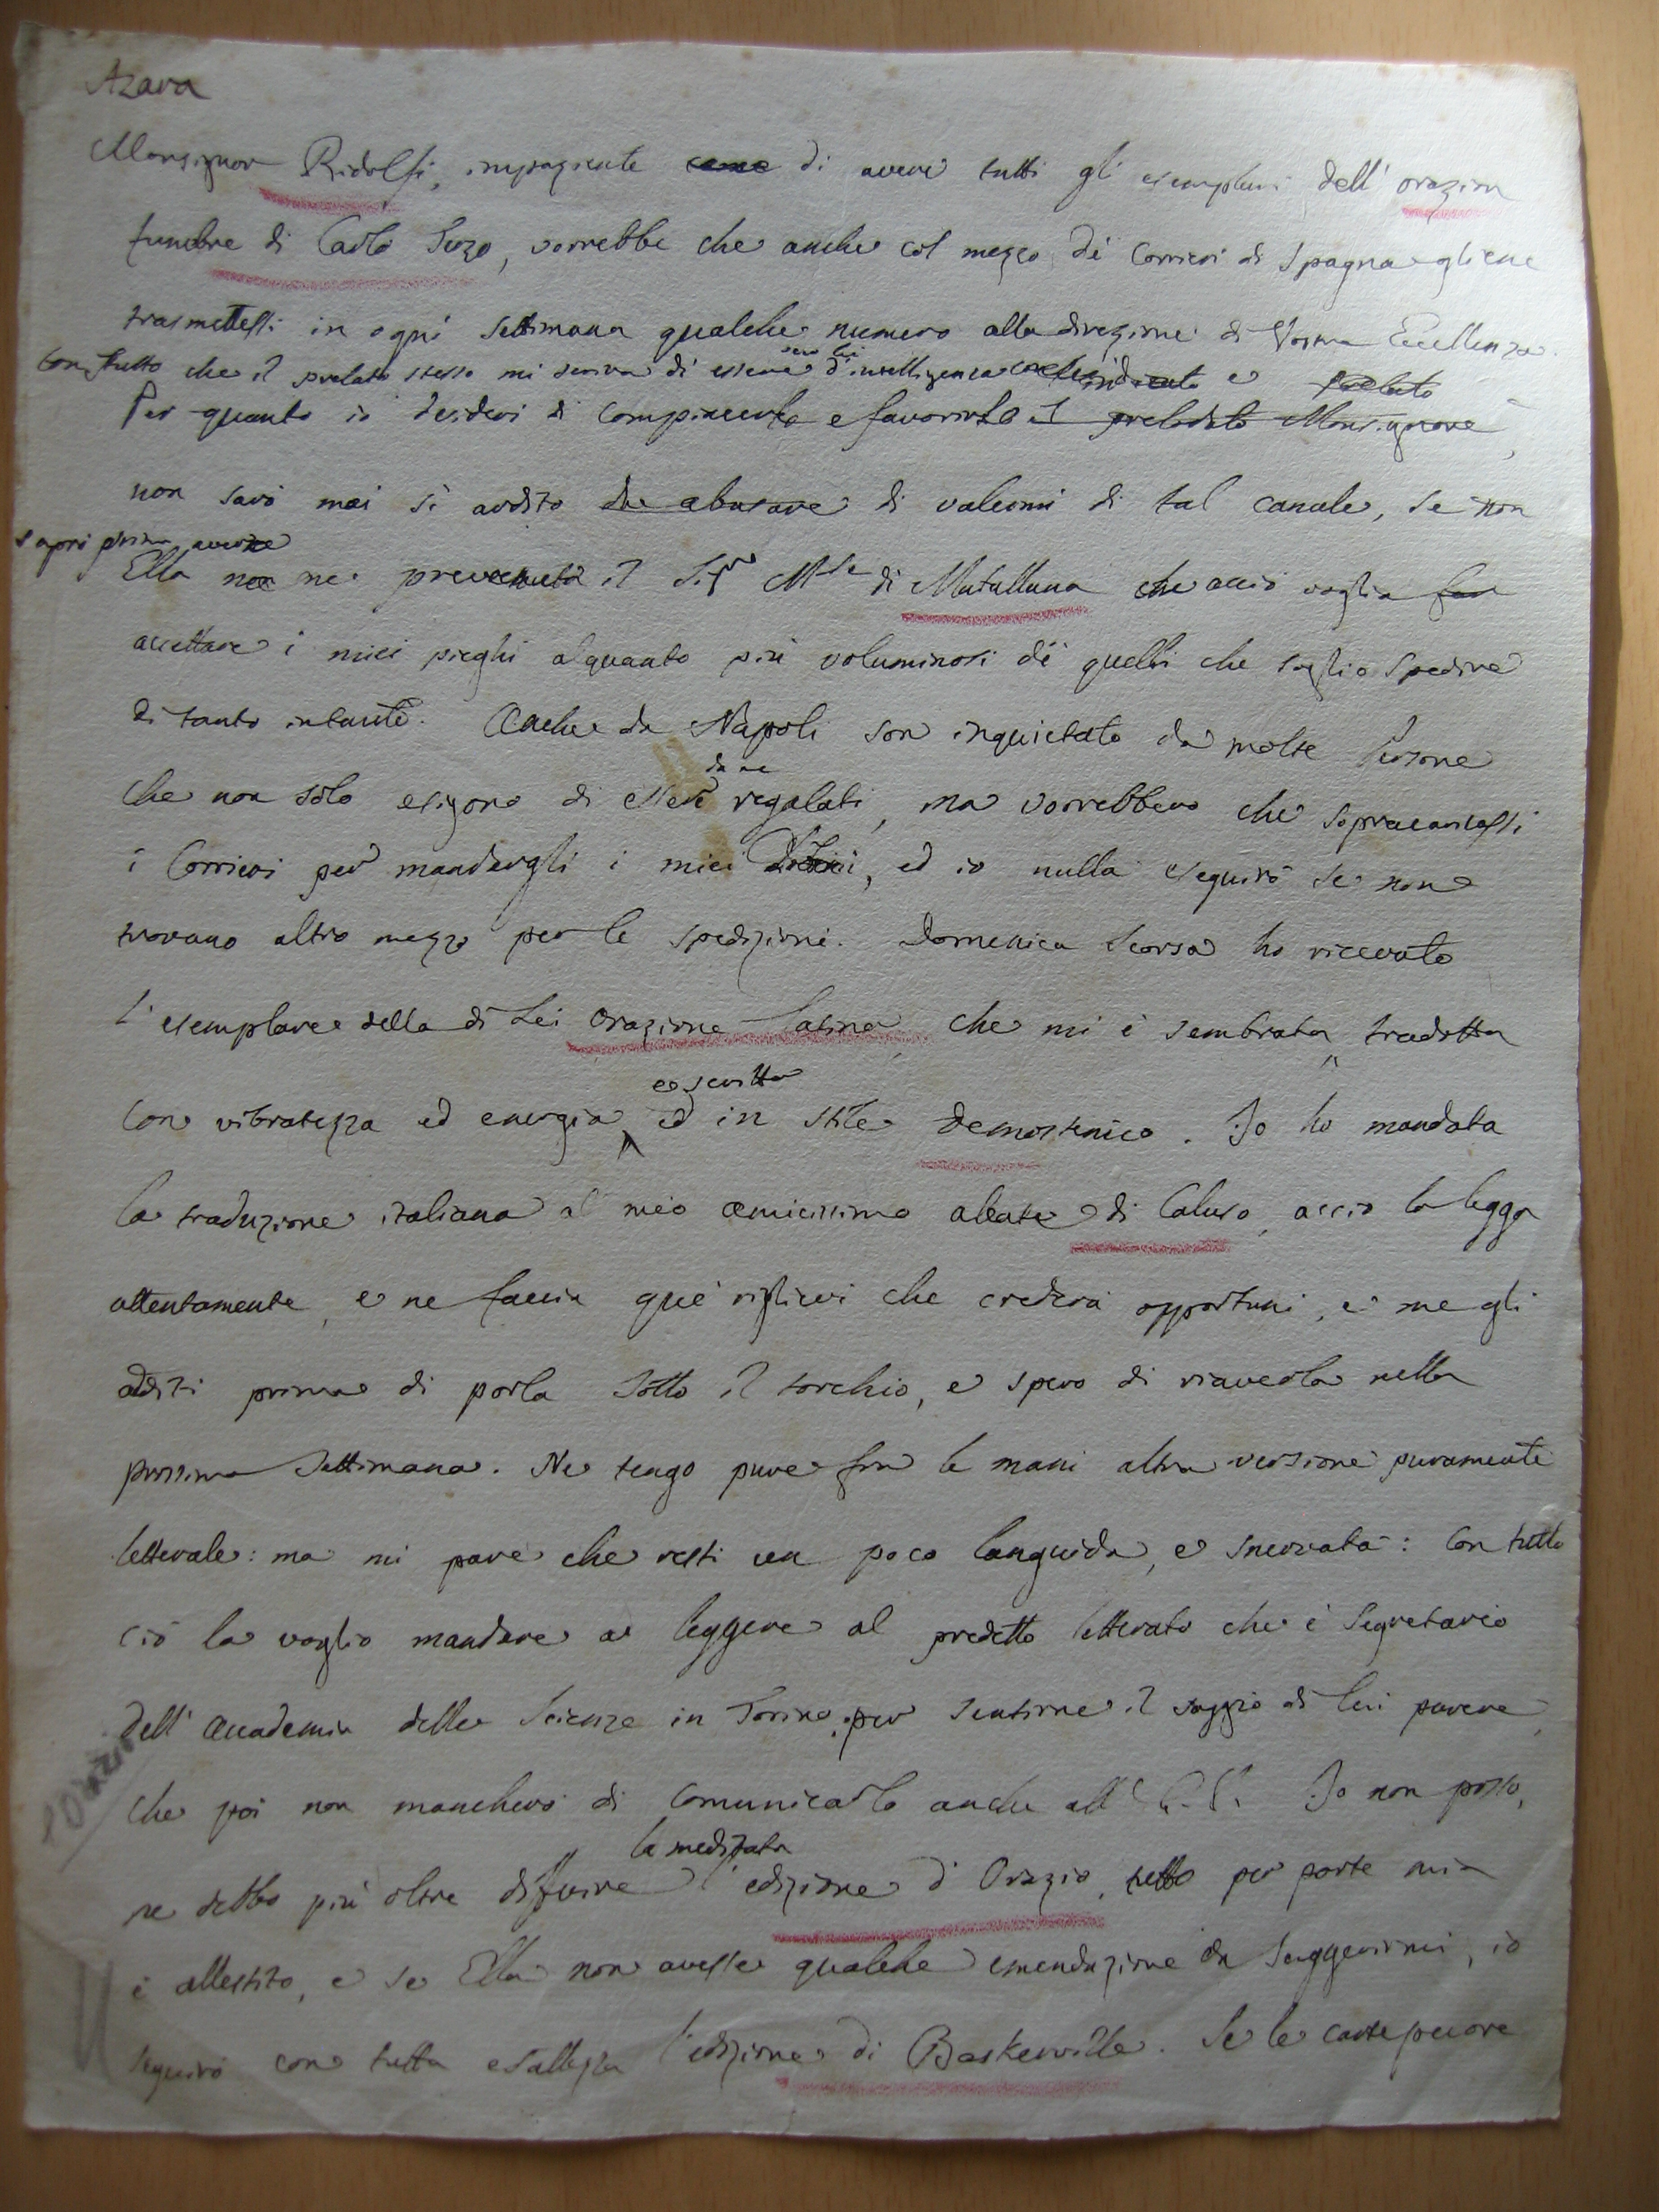 Azara
Monsignor Ridolfi, impaziente come di avere tutti gli esemplari dell'orazion
funebre di Carlo Terzo, vorrebbe che anche col mezzo de' Corrieri di Spagna gliene
trasmettessi in ogni settimana qualche numero alla direzione di Vostra Eccellenza.
Con tutto che il prelato stesso mi scriva di essere seco lei d'intelligenza e
Per quanto io desideri di compiacerlo e favorirlo il prelodato Monsignore,
non sarò mai sì ardito di valermi di tal canale, se non
saprò prima avere
Ella ne il Sig.r M.se di Matallana acciò voglia far
accettare i miei pieghi alquanto più voluminosi de' quelli che soglio spedire
di tanto intanto. Anche da Napoli son inquietato da molte Persone
da me
che non solo esigono di essere regalati, ma vorrebbero che sopracaricassi
i Corrieri per mandargli i miei, ed io nulla eseguirò se non
trovano altro mezzo per le spedizioni. Domenica scorsa ho ricevuto
l'esemplare della di Lei Orazione latina, che mi è sembrata tradotta
e scritta
con vibratezza ed energia, ed in stile demostenico. Io ho mandata
la traduzione italiana al mio amicissimo abate di Caluso, acciò la legga
attentamente, e ne faccia que' riglievi che crederà opportuni, e me gli
additi prima di porla sotto il torchio, e spero di riaverla nella
prossima settimana. Ne tengo pure fra le mani altra versione puramente
letterale: ma mi pare che resti un poco languida, e snervata: Con tutto
ciò la voglio mandare a leggere al predetto letterato che è Segretario
dell'Accademia delle Scienze in Torino per sentirne il saggio di lui parere,
che poi non mancherò di comunicarlo anche all' Io non posso,
la meditata
ne debbo più oltre differire l'edizione d'Orazio, tutto per parte mia
è allestito, e se Ella non avesse qualche emendazione da suggerirmi, io
seguirò con tutta esattezza l'edizione di Baskerville. Se le cartepecore
Orazio